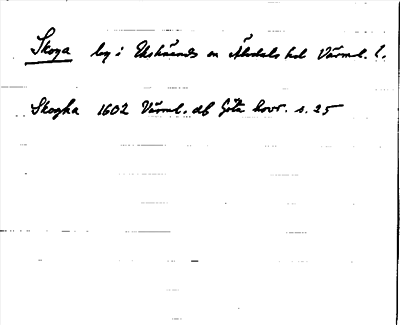 Skoga by i Ekshärads sn Älvdals hd Värml. l.
Skogha 1602 Värml. df Göta hovr. s. 25